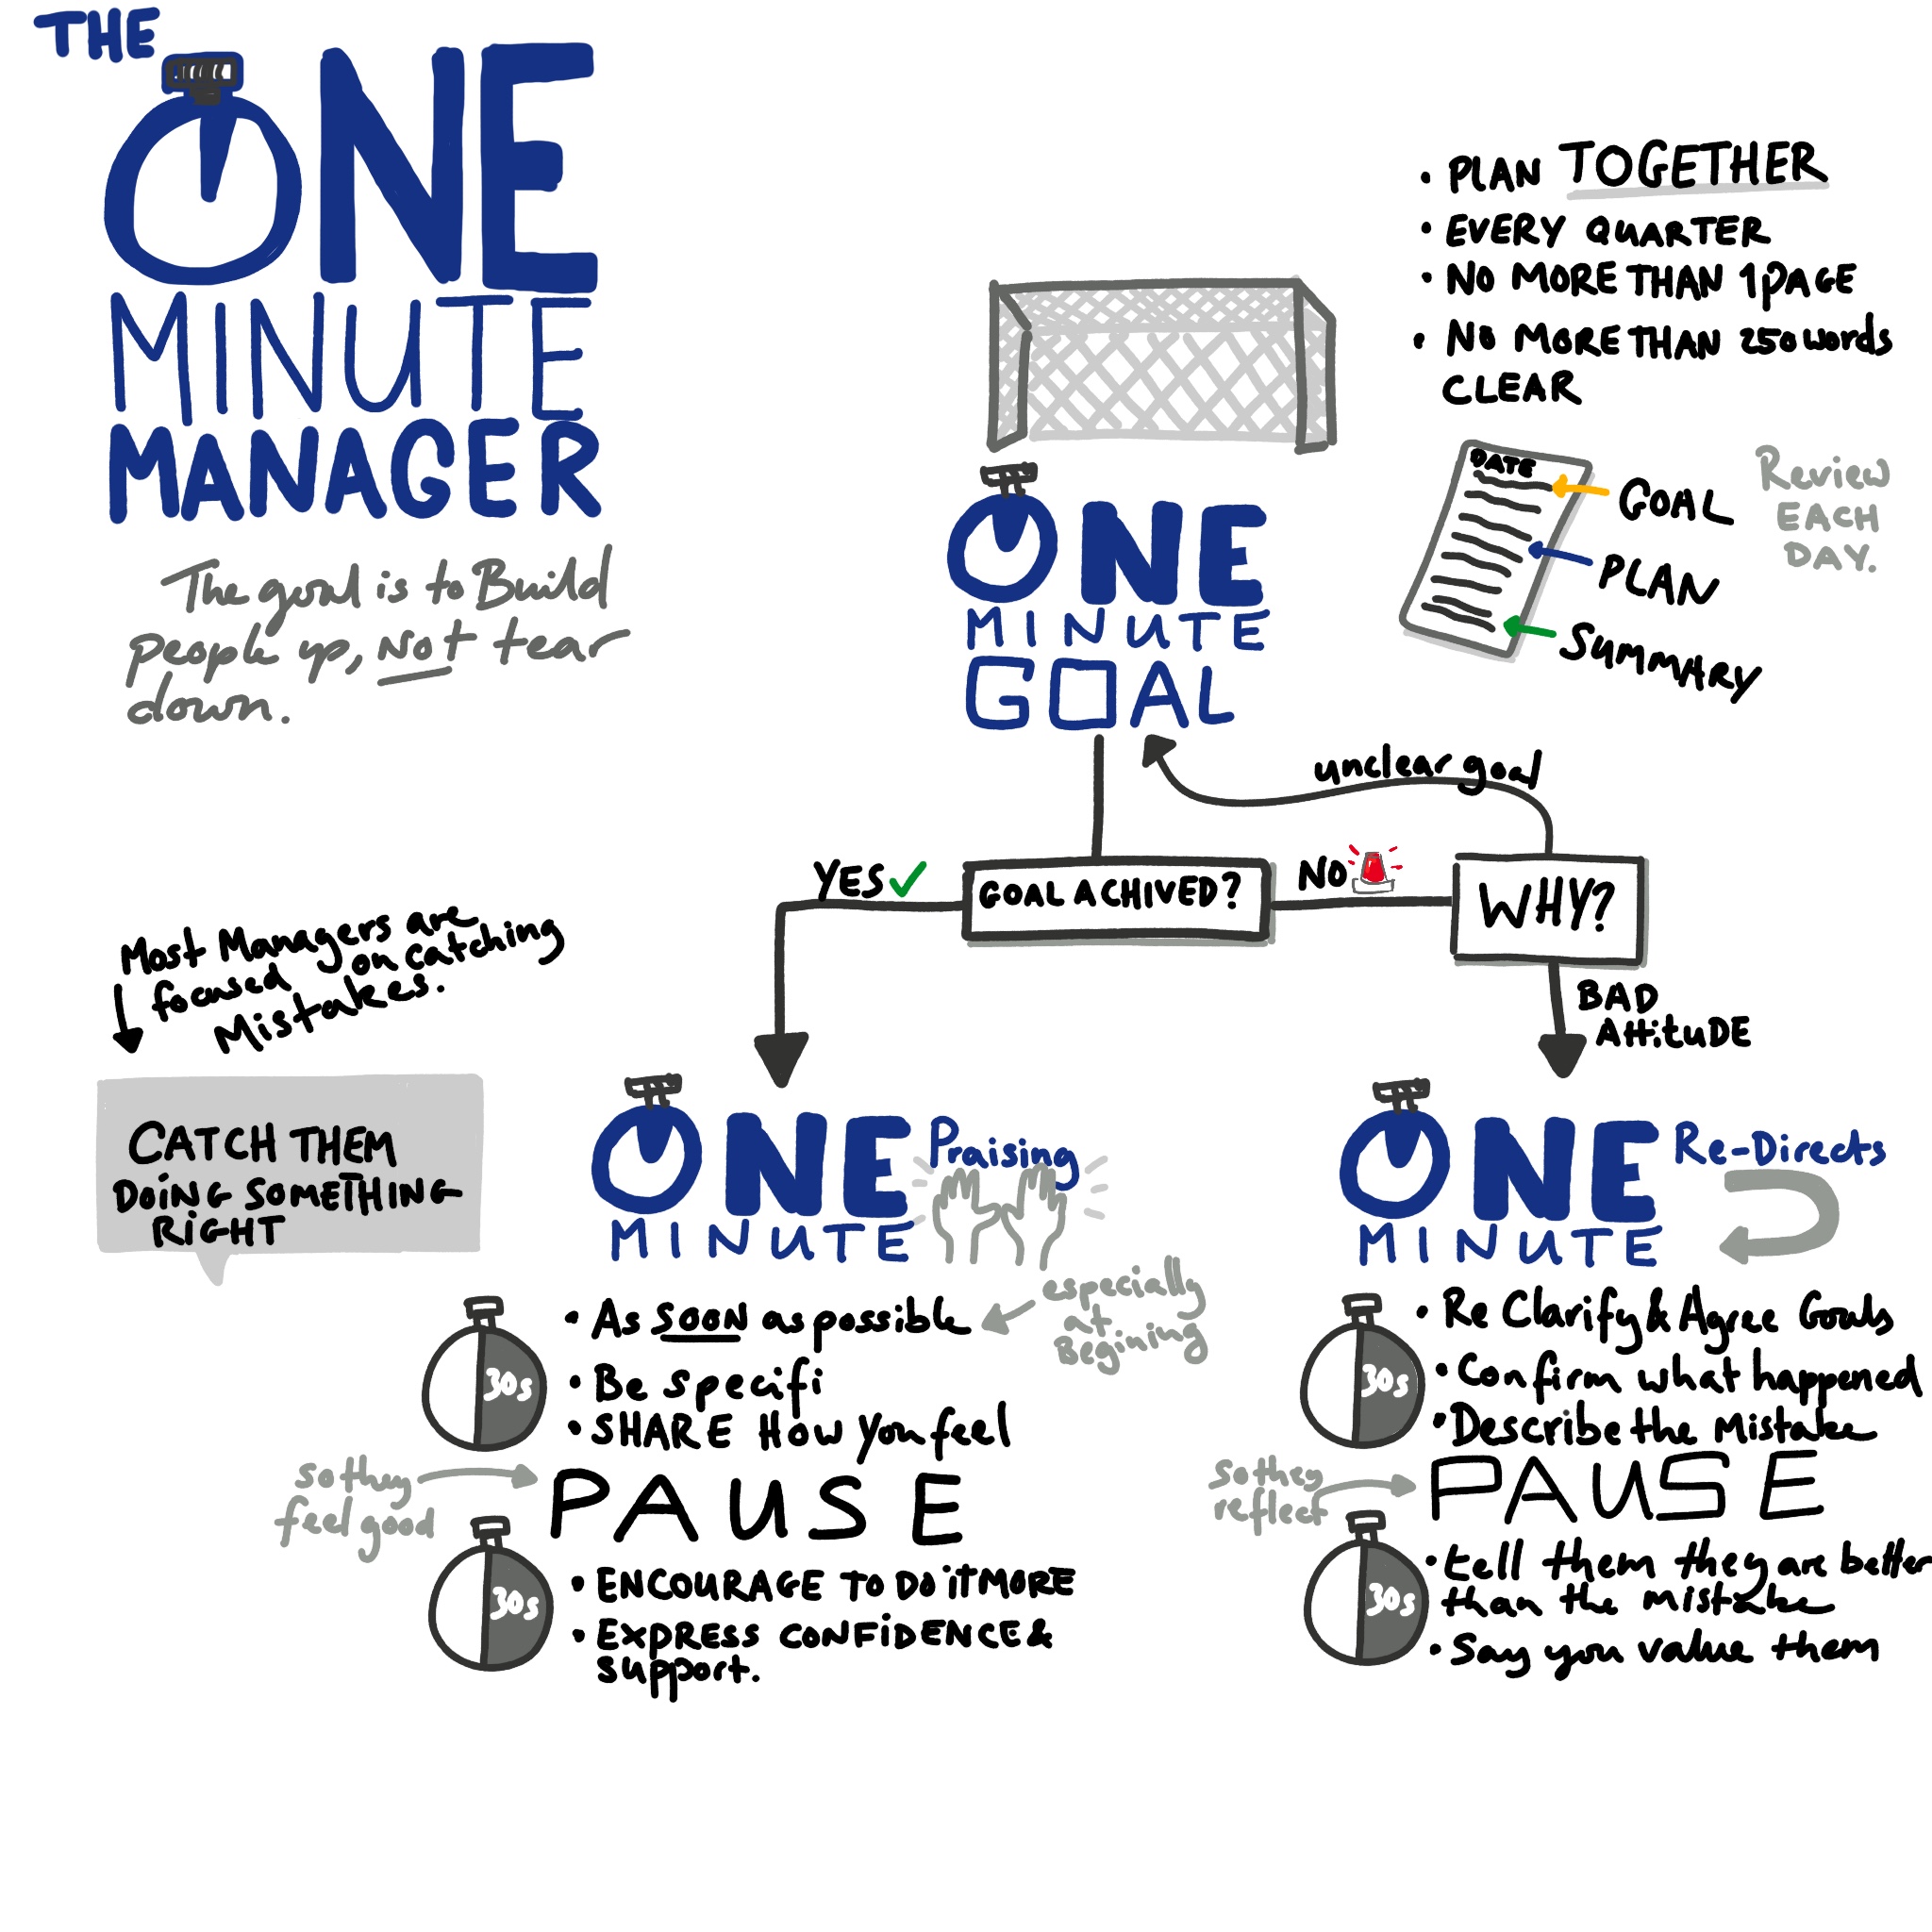 THE
ONE
MINUTE
MANAGER
The goal is to Build
people up, NOT tear
down.
• PLAN TOGETHER
• EVERY QUARTER
• NO MORE THAN 1 PAGE
• NO MORE THAN 250 words
CLEAR
DATE
GOAL
PLAN
SUMMARY
Review
EACH
DAY.
ONE
MINUTE
GOAL
unclear goal
YES
GOAL ACHIVED?
NO
WHY?
BAD
AttituDE
Most Managers are
focused on catching
Mistakes.
CATCH THEM
DOING SOMETHING
RIGHT
ONE Praising
MINUTE
• As SOON as possible
especially
at
Begining
30s
• Be specifi
• SHARE How You feel
so they
feel good
PAUSE
30s
• ENCOURAGE TO DO it MORE
• EXPRESS CONFIDENCE &
support.
ONE Re-Directs
MINUTE
• Re Clarify & Agree Goals
30s
• Confirm what happened
• Describe the Mistake
So they
reflect
PAUSE
30s
• tell them they are better
than the mistake
• Say you value them